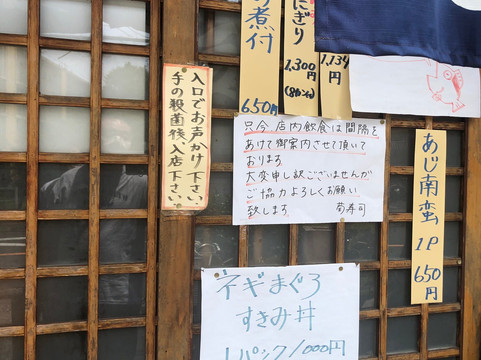 煮付
650円
にぎり
1,300円
1,134
円
入口でお声かけ下さい。
手の殺菌後、入店下さい。
只今店内飲食は間隔を
あけて御案内させて頂いて
おります。
大変申し訳ございませんが
ご協力よろしくお願い
致します 菊寿司
あじ南蛮
1P
650円
ネギまぐろ
すきみ丼
1パック1000円